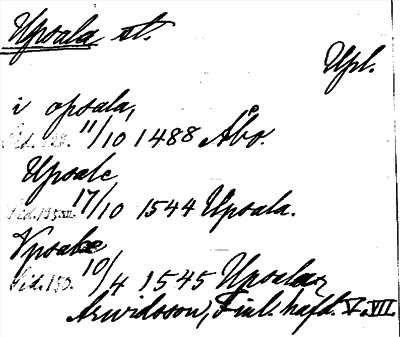 Upsala st.
Upl.
i opsala,
Sid. 11/10 1488 Åbo.
Upsale
Sid. 17/10 1544 Upsala.
Vpsale
Sid. 150. 10/4 1545 Upsala
Arwidsson, Finl. häfd. V. VII.